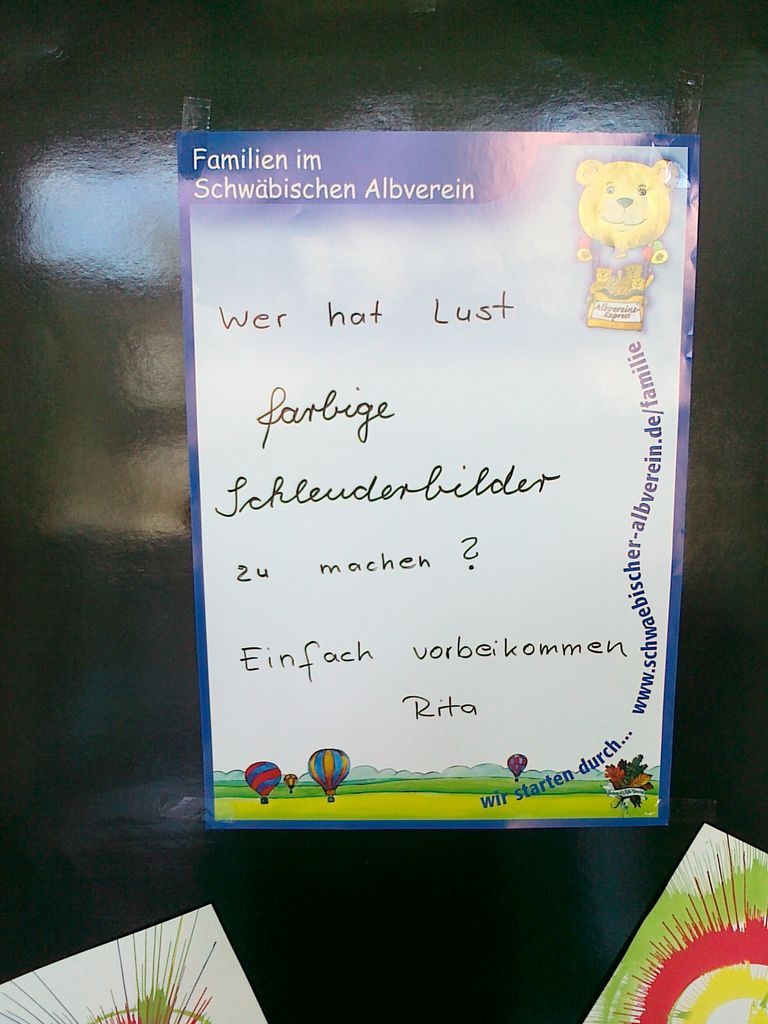 Familien im
Schwäbischen Albverein
Albvereins-
Express
Wer hat Lust
farbige
Schleuderbilder
zu machen?
Einfach vorbeikommen
Rita
wir starten durch...
www.schwaebischer-albverein.de/familie